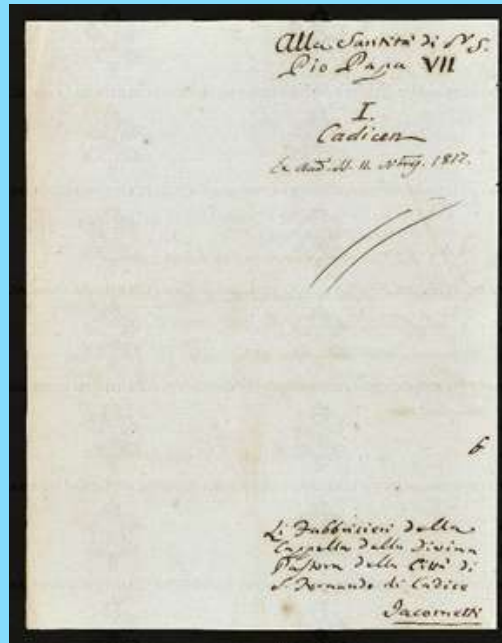 Alla Santità di N. S.
Pio Papa VII
I.
Cadicen
Ex Aud. SS. 11. 1817.
6
Li Fabbricieri della
Cappella della Divina
Pastora della Città di
S. Fernando di Cadice
Jacometti